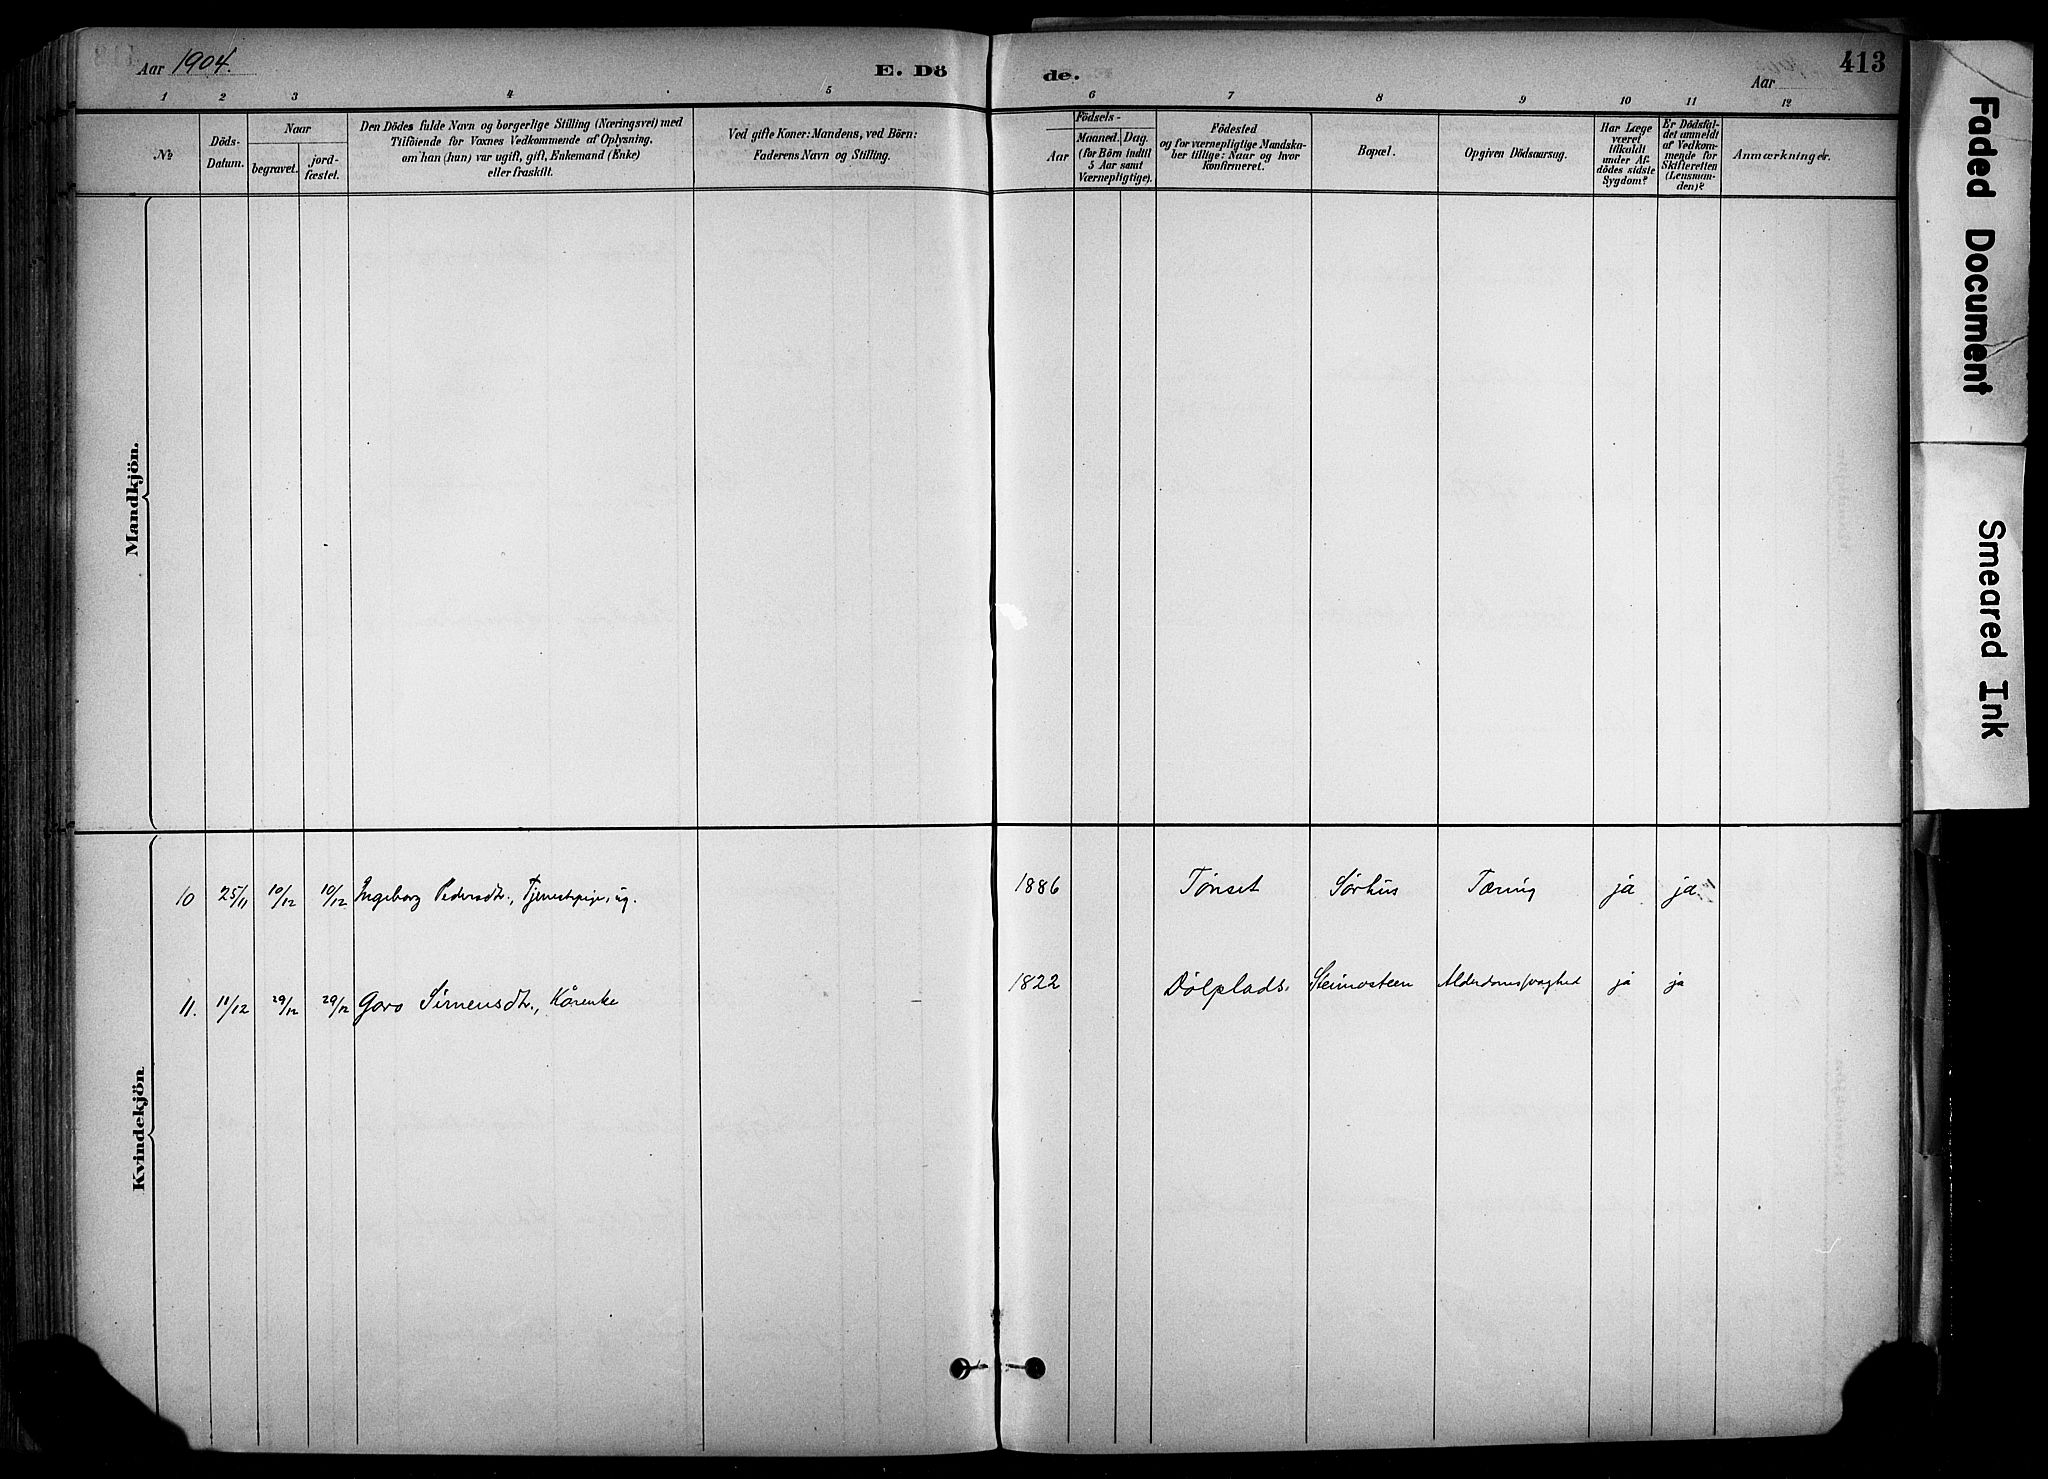 Aar 1904.
E. Dö
de.
Aar
413
1 2 3 4 5 6 7 8 9 10 11 12
№
Döds-
Datum.
Naar
begravet.
jord-
fæstet.
Den Dödes fulde Navn og borgerlige Stilling (Næringsvei) med
Tilföiende for Voxnes Vedkommende af Oplysning,
om han (hun) var ugift, gift, Enkemand (Enke)
eller fraskilt.
Ved gifte Koner: Mandens, ved Börn:
Faderens Navn og Stilling.
Födsels-
Aar
Maaned.
Dag.
(for Börn indtil
5 Aar samt
Værnepligtige).
Födested
og for værnepligtige Mandska-
ber tillige: Naar og hvor
konfirmeret.
Bopæl.
Opgiven Dödsaarsag.
Har Læge
været
tilkaldt
under Af-
dödes sidste
Sygdom?
Er Dödsfal-
det anmeldt
af Vedkom-
mende for
Skifteretten
(Lensman-
den)?
Anmærkninger.
Mandkjön.
Kvindekjön
10 25/11 10/12 10/12 Ingeborg Pedersdtr., Tjenestepige, ug. 1886 Tønset Sørhus Tæring ja ja
11. 11/12 29/12 29/12 Goro Simensdtr., Kårenke 1822 Dølplads. Steimosteen Alderdomssvaghed ja ja
Faded Document
Smeared Ink